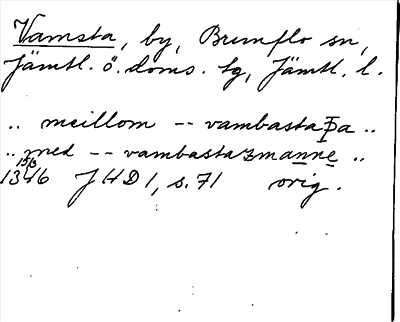 Vamsta, by, Brunflo sn,
Jämtl. ö. doms. tg, Jämtl. l.
.. meillom -- vambasta þa ..
.. med -- vambastazmanne ..
15/3
1346 JHD 1, s. 71 orig.